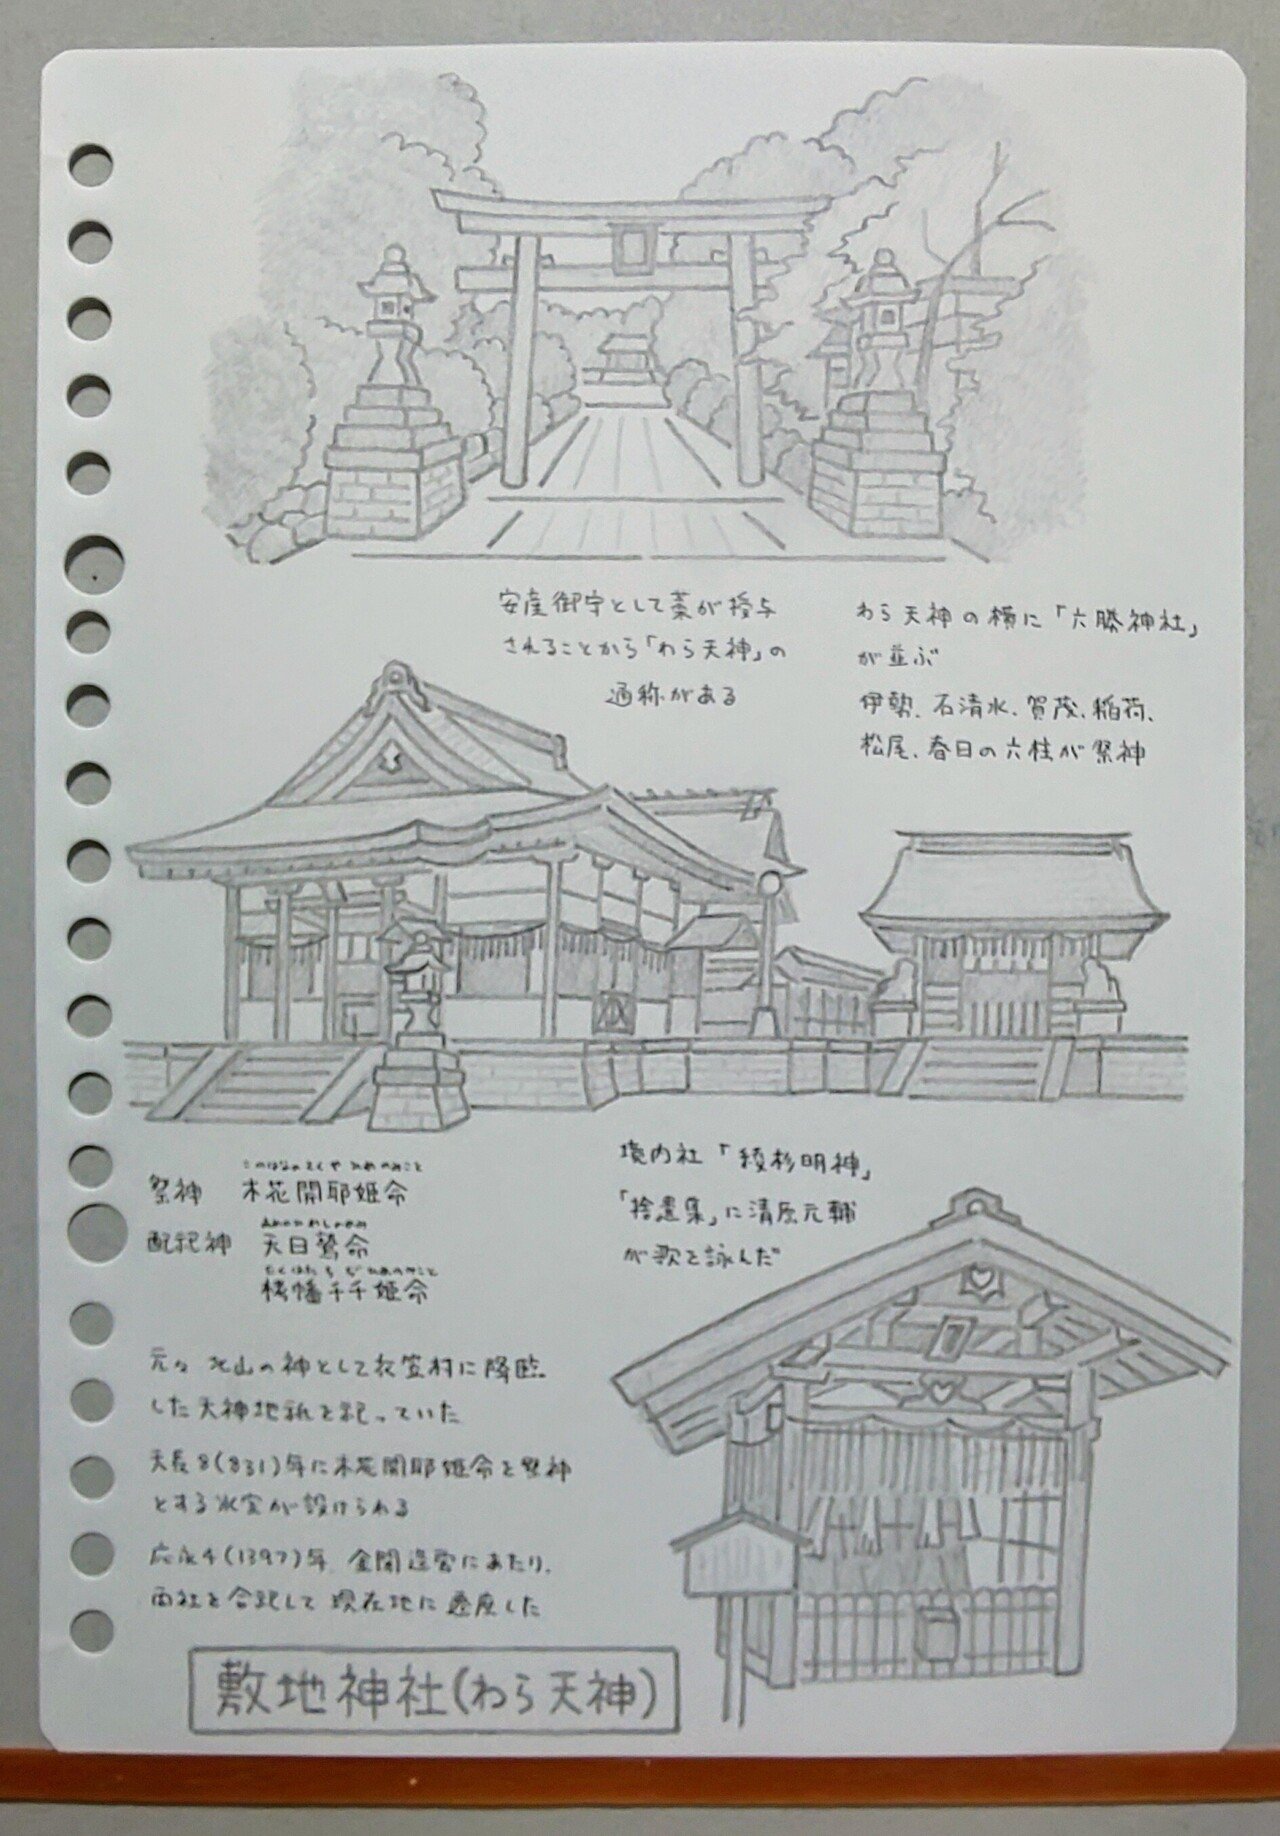 安産御守として藁が授与
されることから「わら天神」の
通称がある
わら天神の横に「六勝神社」
が並ぶ
伊勢、石清水、賀茂、稲荷、
松尾、春日の六柱が祭神
祭神 木花開耶姫命
このはなのさくやひめのみこと
配祀神 天日鷲命
あめのひわしのみこと
栲幡千千姫命
たくはたちぢひめのみこと
境内社「綾杉明神」
「拾遺集」に清原元輔
が歌を詠んだ
元々北山の神として衣笠村に降臨
した天神地祇を祀っていた
天長8(831)年に木花開耶姫命を祭神
とする氷室が設けられる
応永4(1397)年、金閣造営にあたり、
両社を合祀して現在地に遷座した
敷地神社(わら天神)